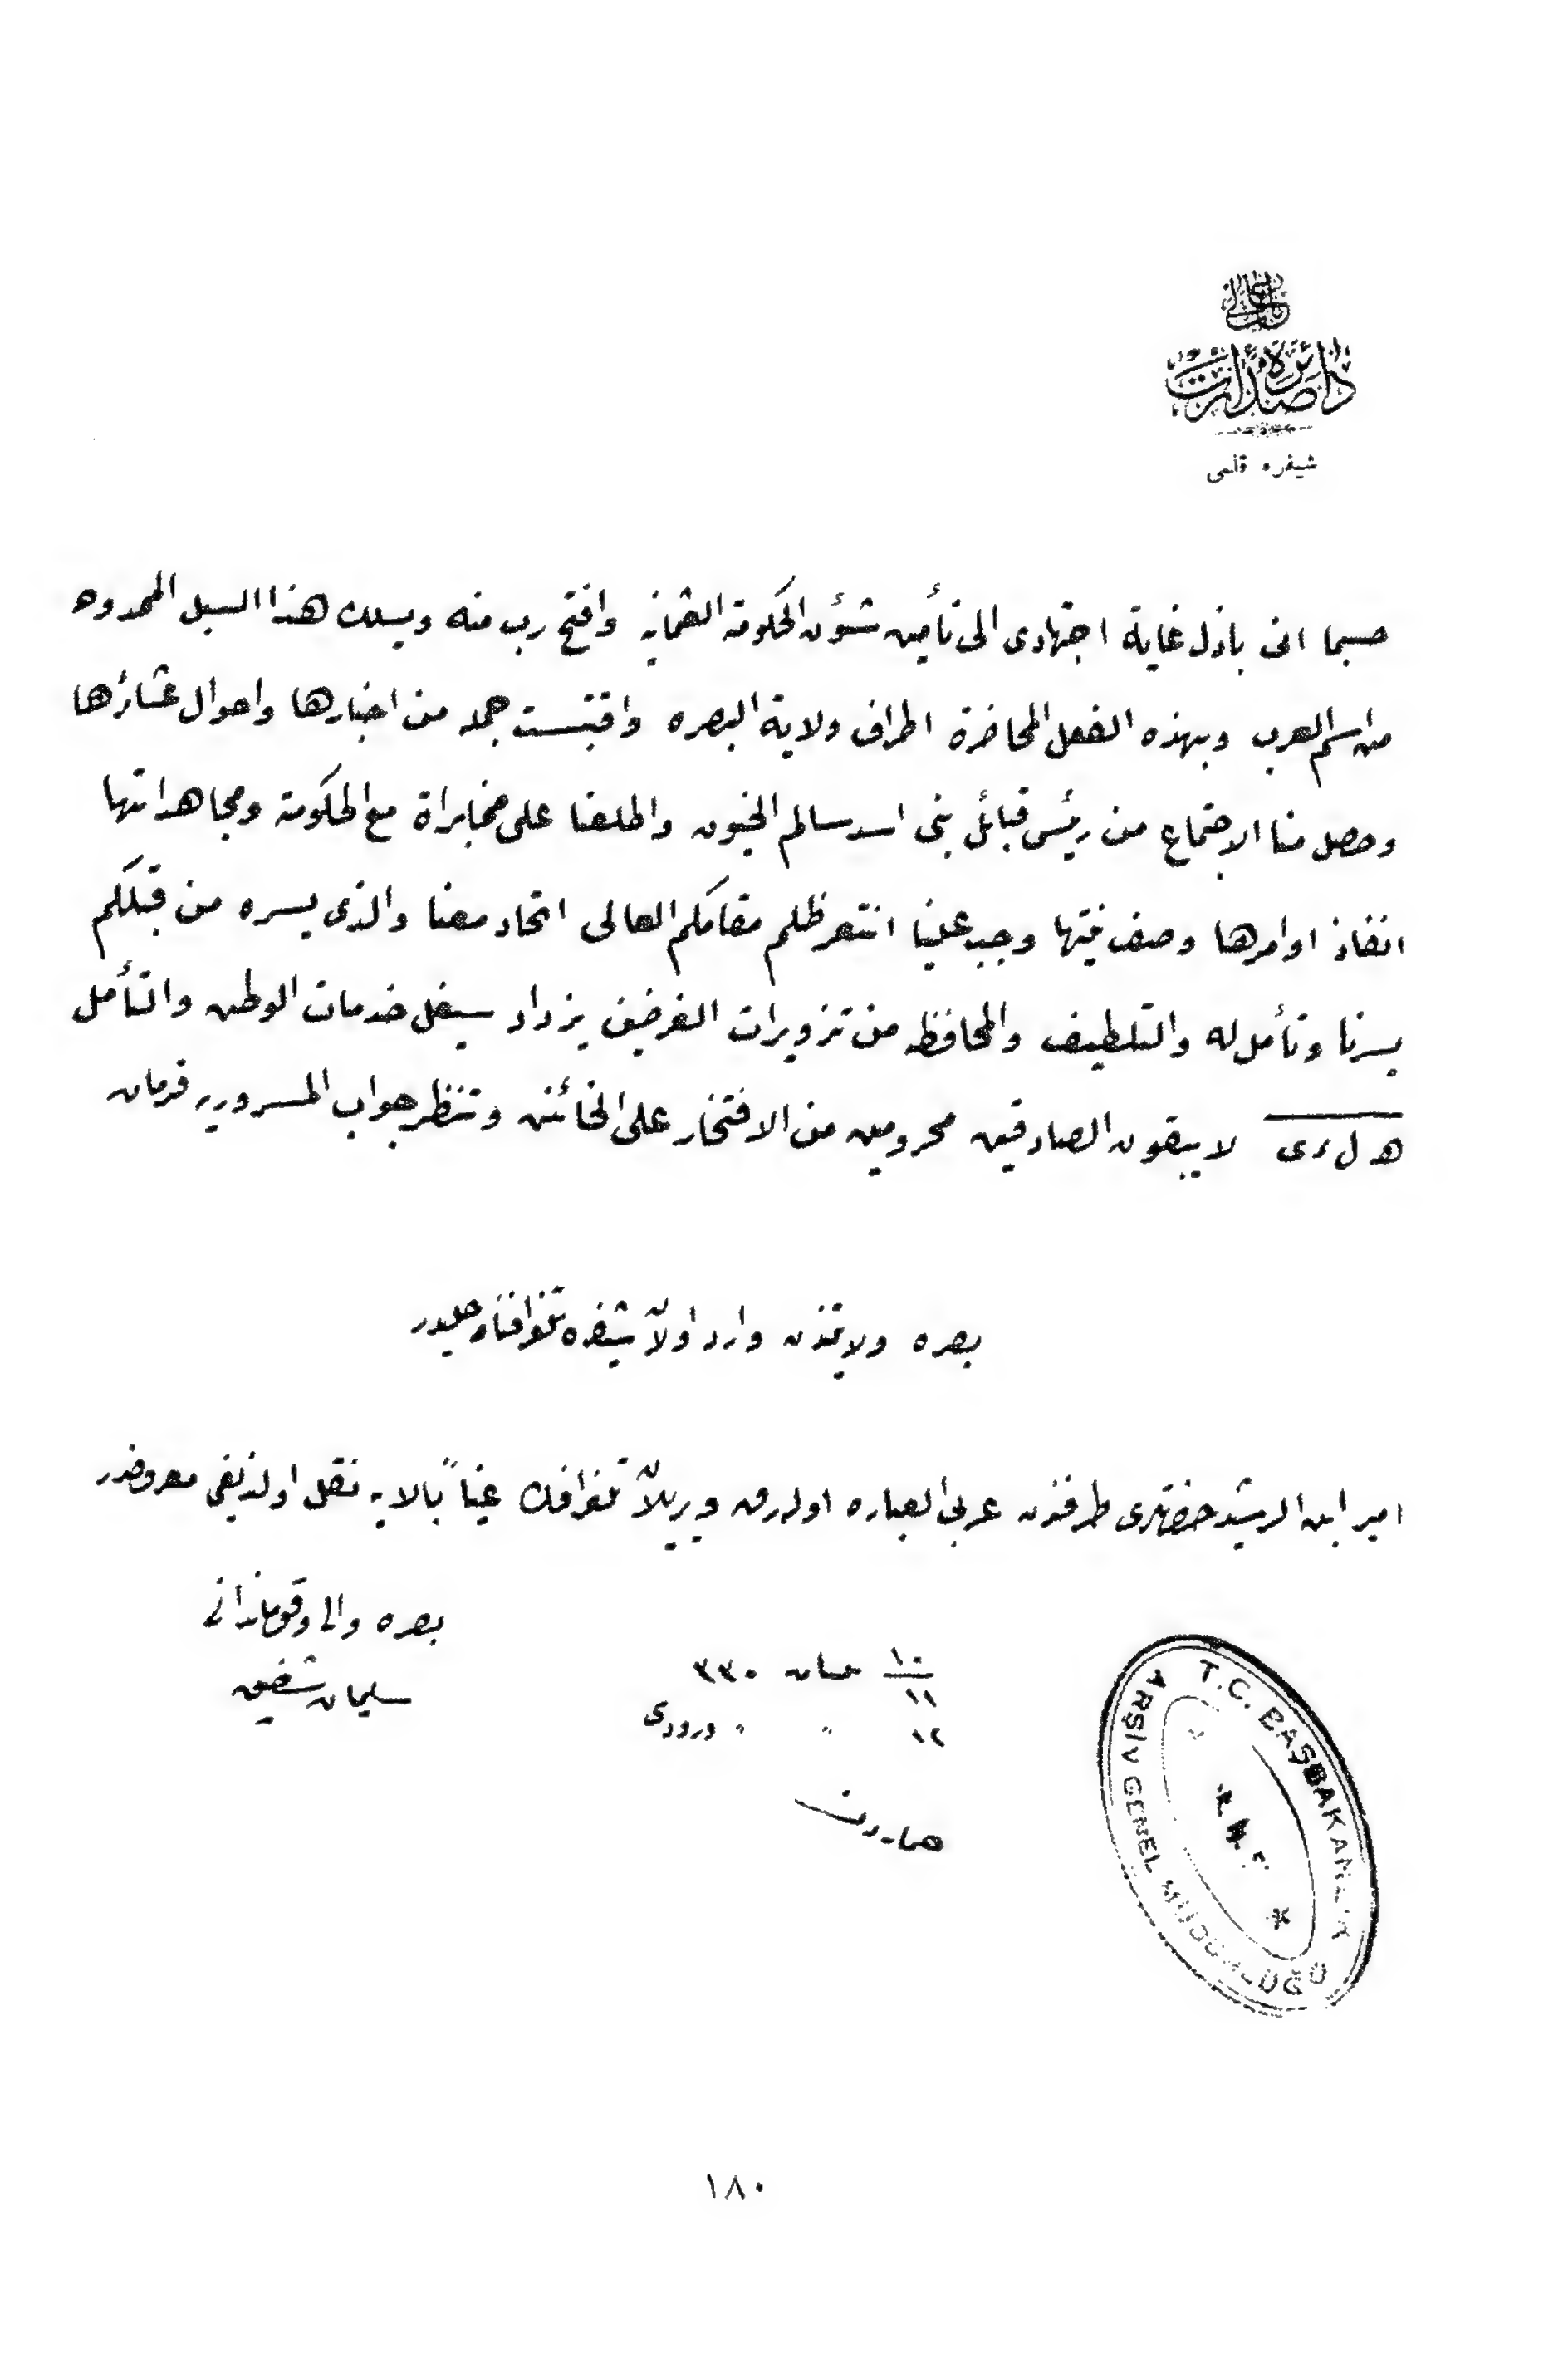 باب عالی
دائره صدارت
شیفره قلمی
حسبما انى باذل غاية اجتهادى الى تأمين شؤن الحكومة العثمانيه وافتح رب منه ويسلك هذا السبل
من اسم العرب وبهذه الفعل المحاضرة اطراف ولاية البصره واقتبست جملة من اخبارها واحوال عشائرها
وحصل منا الاجتماع من رئيس قبائل بنى اسد سالم الخيون واطلعنا على مخابراة مع الحكومة ومجاهداتها
انفاذ اوامرها وصف نيتها وجب علينا مقامكم العالى اتحاد معنا والذى يسره من قبلكم
يسرنا ونأمل له والتلطيف والمحافظه من تزويرات الغرضين يزداد سيفل خدمات الوطن والتأمل
لا يبقون الصادقين محرومين من الافتخار على الخائنين وتنتظر جواب المسرورين فرمان
بصره ولايتندن وارد اولان شيفره تلغرافنامه حليدر
امير ابن الرشيد حضرتلرى طرفندن عربى العباره اوله رق ويريلان تلغرافك عيناً بالايه نقل اولنديغى معروضدر
بصره والى وقوماندانى
سليمان شفيق
١٠ نيسان ٣٣٠
١١
١٢ " " ورودى
T.C. BAŞBAKANLIK
ARŞİV GENEL MÜDÜRLÜĞÜ
١٨٠